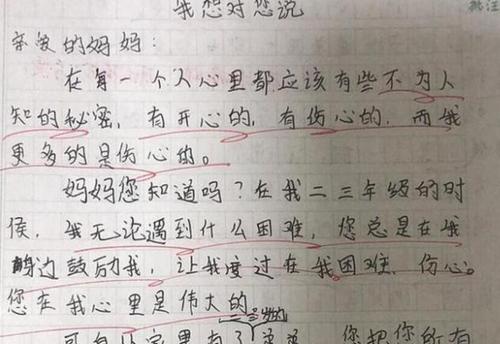 我想对您说
批注
亲爱的妈妈：
在每一个人心里都应该有些不为人
知的秘密，有开心的，有伤心的，而我
更多的是伤心的。
妈妈您知道吗？在我二三年级的时
候，我无论遇到什么困难，您总是在我
身边鼓励我，让我度过在我困难、伤心。
您在我心里是伟大的。
可自从家里有了弟弟 您把你所有